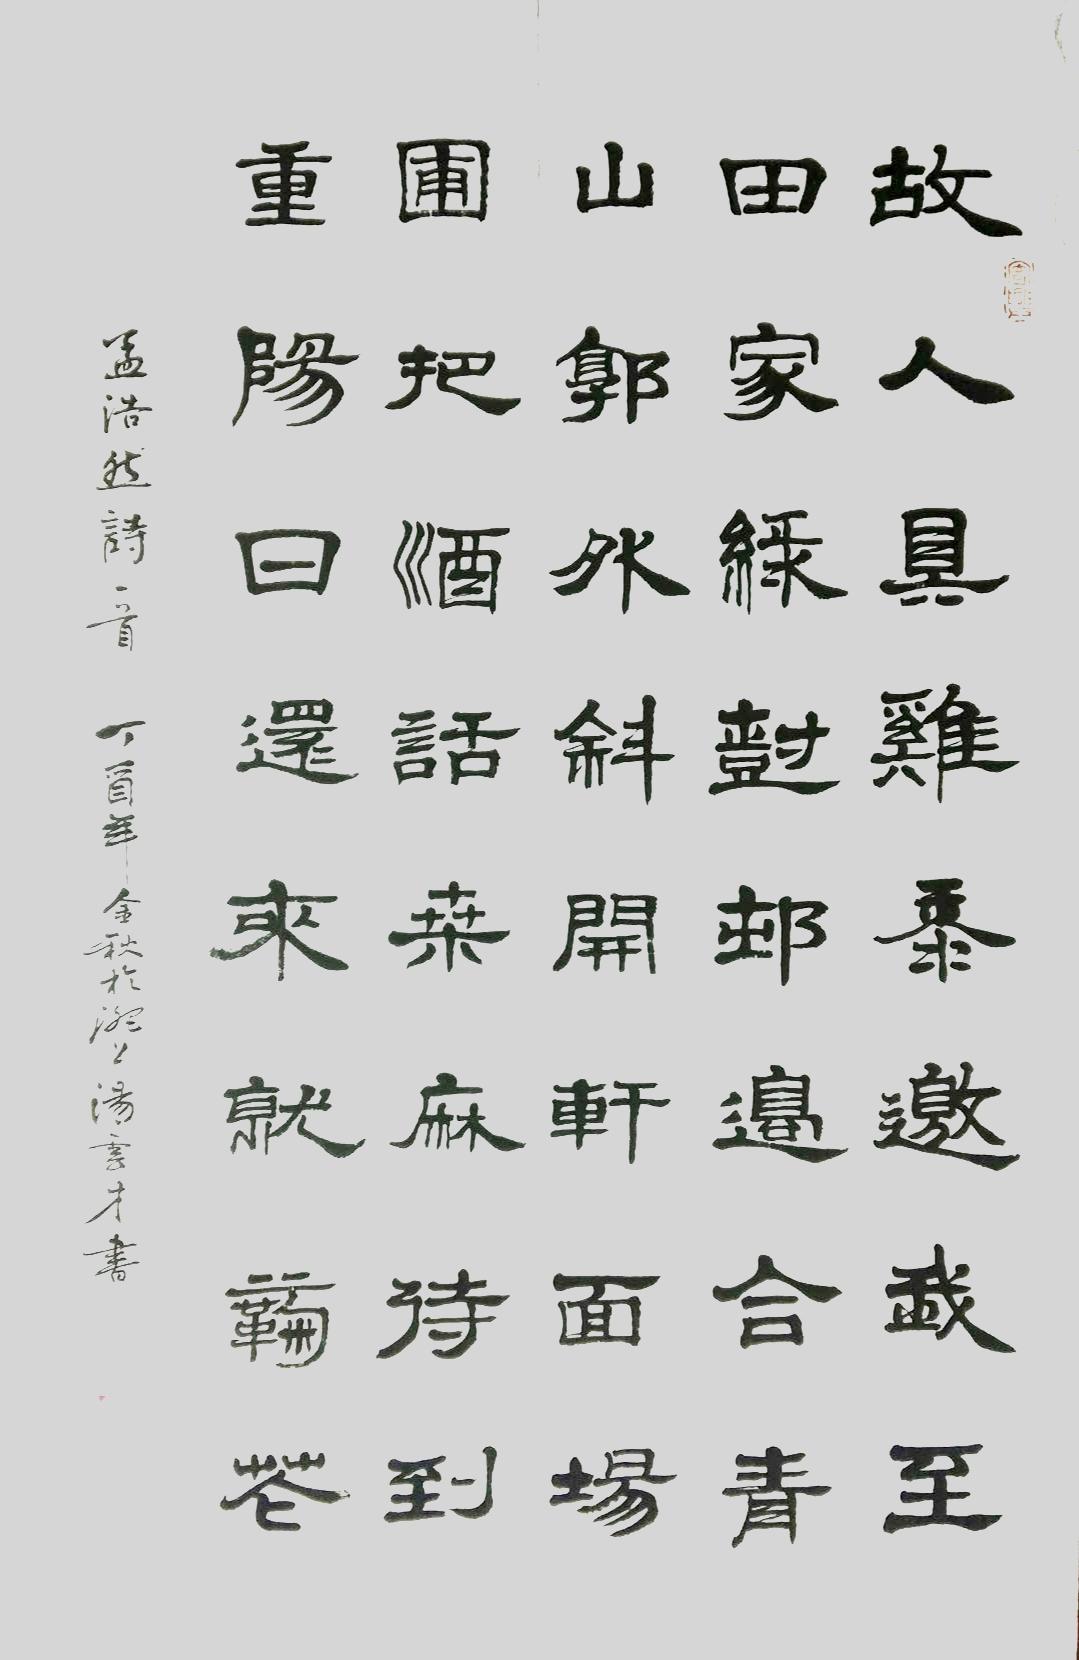 故人具雞黍邀我至
田家綠尌邨邊合青
山郭外斜開軒面場
圃把酒話桒麻待到
重陽日還來就蘜花
孟浩然詩一首 丁酉年金秋於湯書